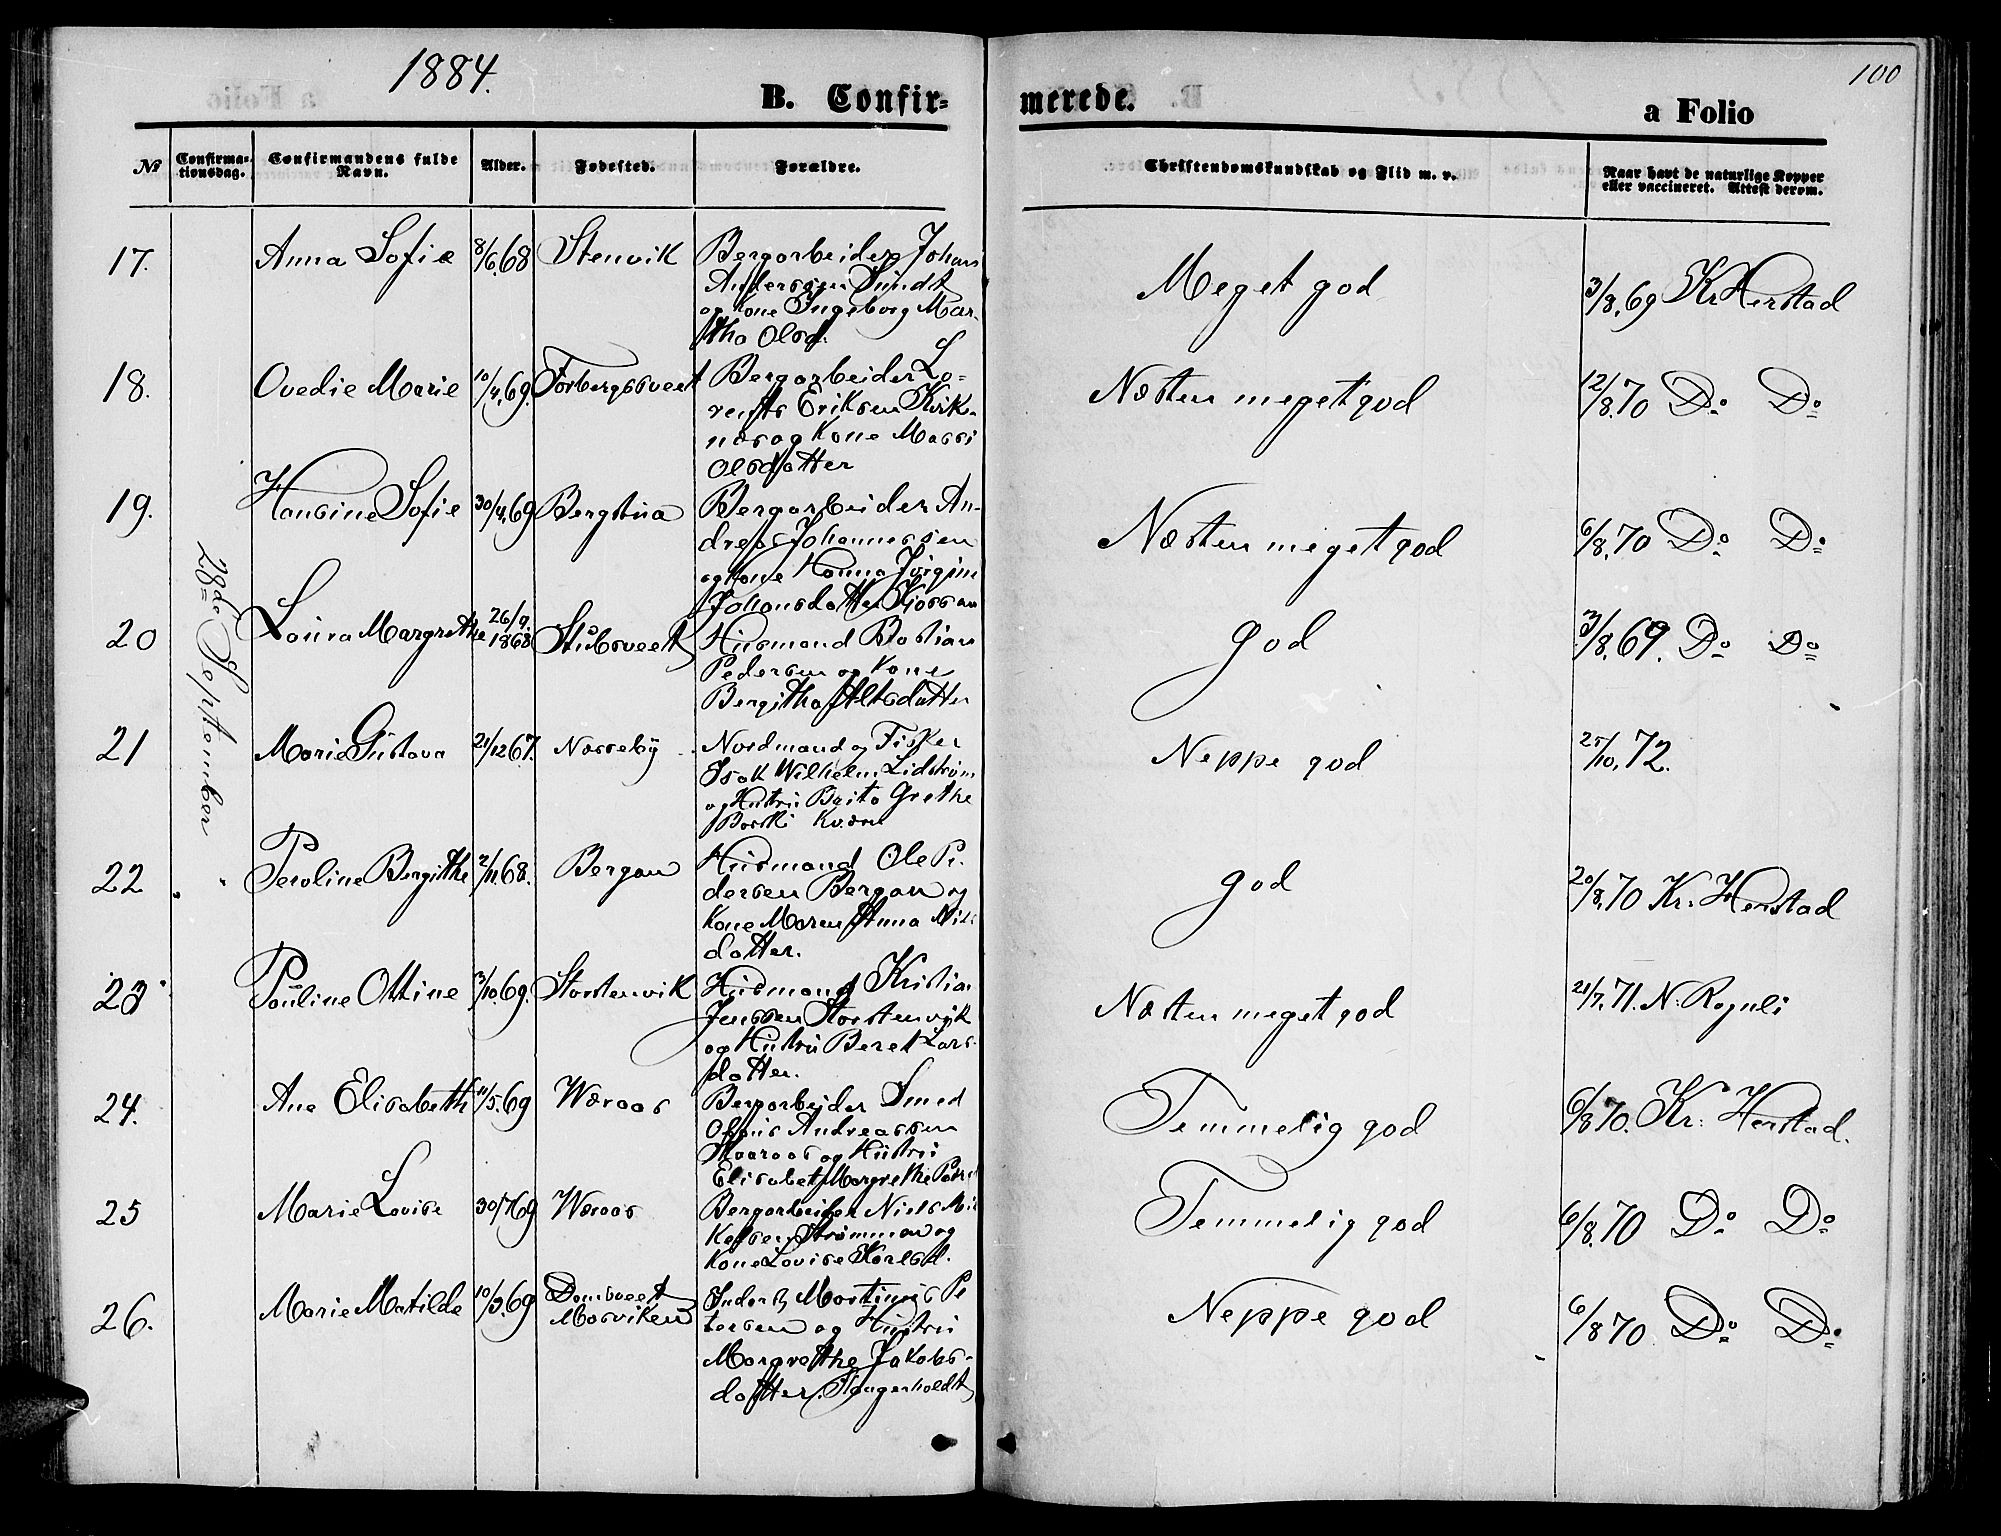 1884.
100
B. Confir-
merede.
a Folio
No
Confirma-
tionsdag.
Confirmandens fulde
Navn.
Alder.
Fødested.
Forældre.
Christendomskundskab og Flid m. v.
Naar havt de naturlige Kopper
eller vaccineret. Attest derom.
28de September
17.
Anna Sofie
8/6.68
Stenvik
Bergarbeider Johan
Anderssen Sundt
og Kone Ingeborg Mar-
tha Olsd.
Meget god
3/8.69 Kr Herstad
18.
Ovedie Marie
10/4.69.
Forbergssveet
Bergarbeider Lo-
rents Eriksen Kvik-
næs og Kone Massi
Olsdatter
Næsten meget god
12/8.70 Do Do
19.
Hansine Sofie
30/4.69
Bergstua
Bergarbeider An-
dreas Johannessen
og Kone Hanna Jörgine
Johansdatter
Næsten meget god
6/8.70 Do Do
20
Laura Margrethe
26/9.
1868
Stubsveet
Husmand Bastian
Pedersen og Kone
Bergitha datter
god
3/8.69. Do Do
21
Marie Gustava
21/12 67.
Næsseby
Nordmand og Fisker
Isak Wilhelm Lidstrøm
og Hustru Brita Grethe
Kvæn
Neppe god
25/10.72.
22
Peroline Bergithe
2/11.68.
Bergan
Husmand Ole Pe-
dersen Bergan og
Kone Maren Anna Nils
datter.
god
20/8.70 Kr. Herstad
23
Pauline Ottine
3/10.69.
Storstenvik
Husmand Kristian
Jenssen Storstenvik
og Hustru Beret Lars-
datter.
Næsten meget god
21/7.71. N.
24.
Ane Elisabeth
11/5.69
Wæraas
Bergarbeider Smed
Andreassen
og Hustru
Elisabet Margrethe
Temmelig god
6/8 70. Kr: Herstad.
25
Marie Lovise
30/7 69
Wæraas
Bergarbeider Niels Mi
kelsen Strømmen og
Kone Lovise Karlsd.
Temmelig god
6/8.70 Do Do
26.
Marie Matilde
10/3.69
Domsveet
Mosviken
Inderst Martinus Pe
tersen og Hustru
Margrethe Jakobs-
datter.
Neppe god
6/8 70 Do Do